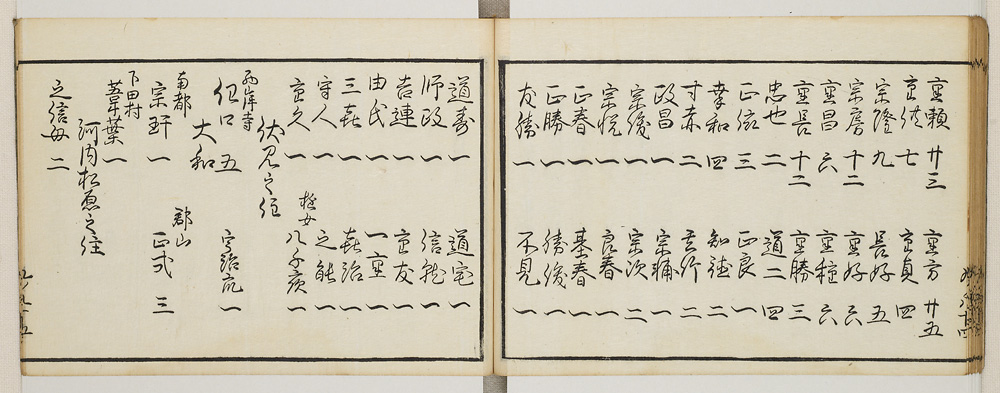 重頼 廿三 重方 廿五
重供 七 重貞 四
宗隆 九 長好 五
宗房 十二 重好 六
重昌 六 重種 六
重長 十二 重勝 三
忠也 二 道二 四
正依 三 正良 一
幸和 四 知徳 二
寸赤 二 玄竹 二
政昌 一 宗輔 一
宗俊 一 宗次 二
宗悦 一 良春 一
正春 一 基春 一
正勝 一 勝俊 一
友勝 一 不見 一
道寿 一 道宅 一
師政 一 信就 一
吉連 一 重友 一
由氏 一 一重 一
三喜 一 喜治 一
守人 一 之能 一
重久 一 捨女 八千廣 一
伏見之住
西岸寺
任口 五 宇治亢 一
大和
南都 郡山
宗玕 一 正弐 三
下田村
葦葉 一
河内松原之住
之信母 二